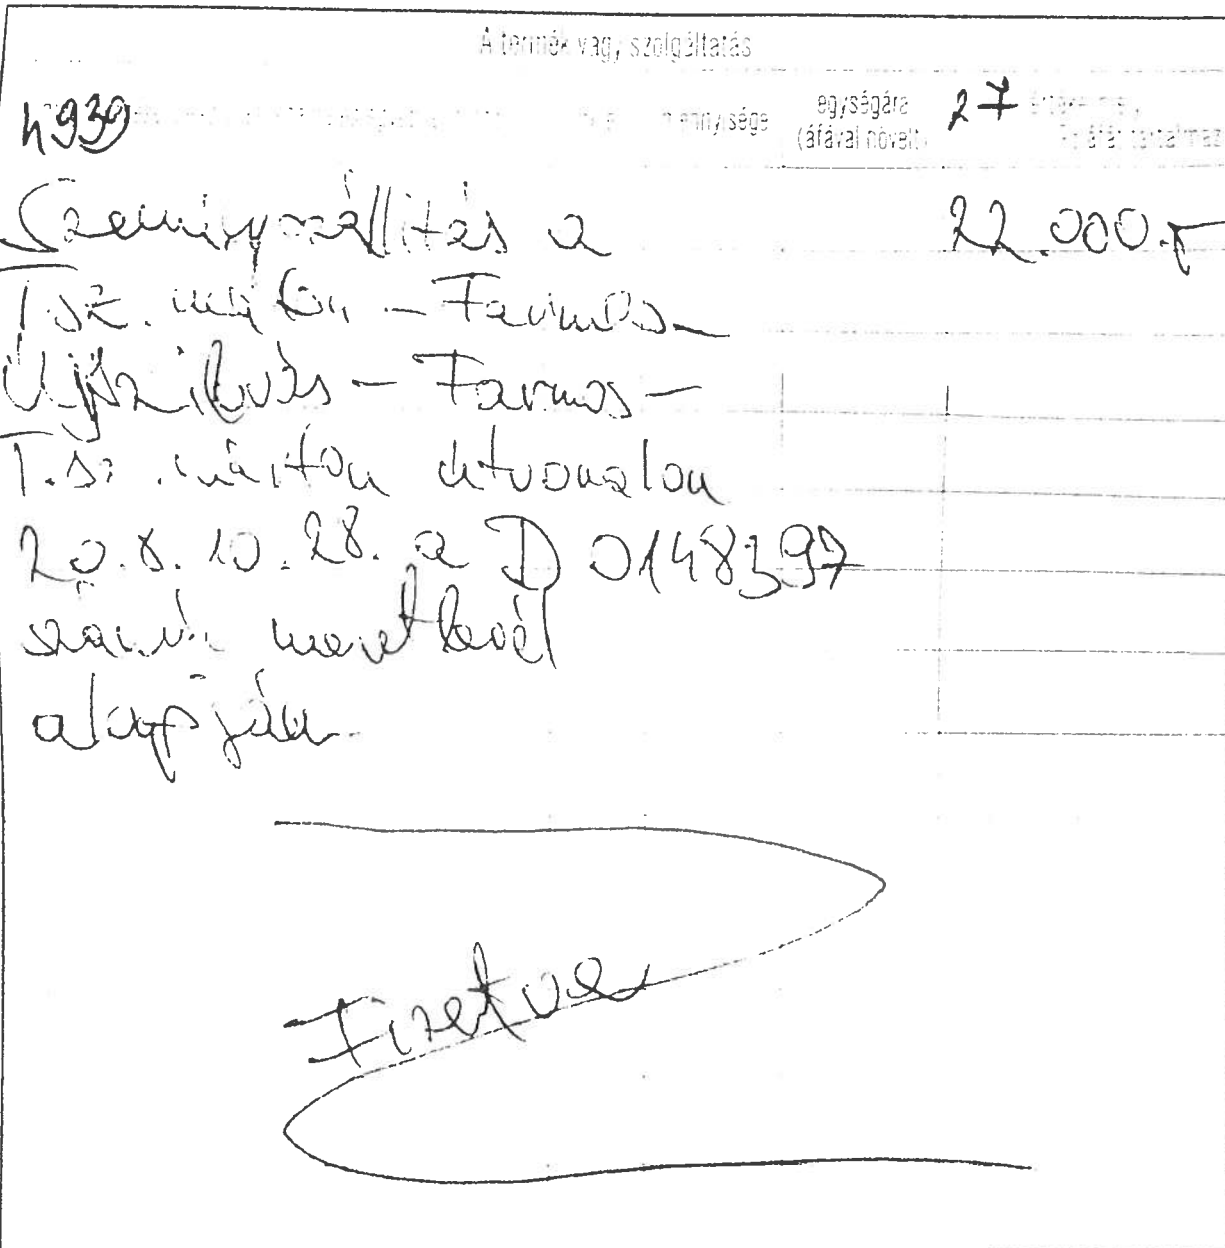 A termék vagy szolgáltatás
4939 mennyisége egységára (áfával növelt) 27
Személyszállítás a 22.000.-
T.sz. márton - Farmos -
Újszilvás - Farmos -
T.sz. márton útvonalon
20.8.10.28. a D 0148397
számú menetlevél
alapján.
Fizetve